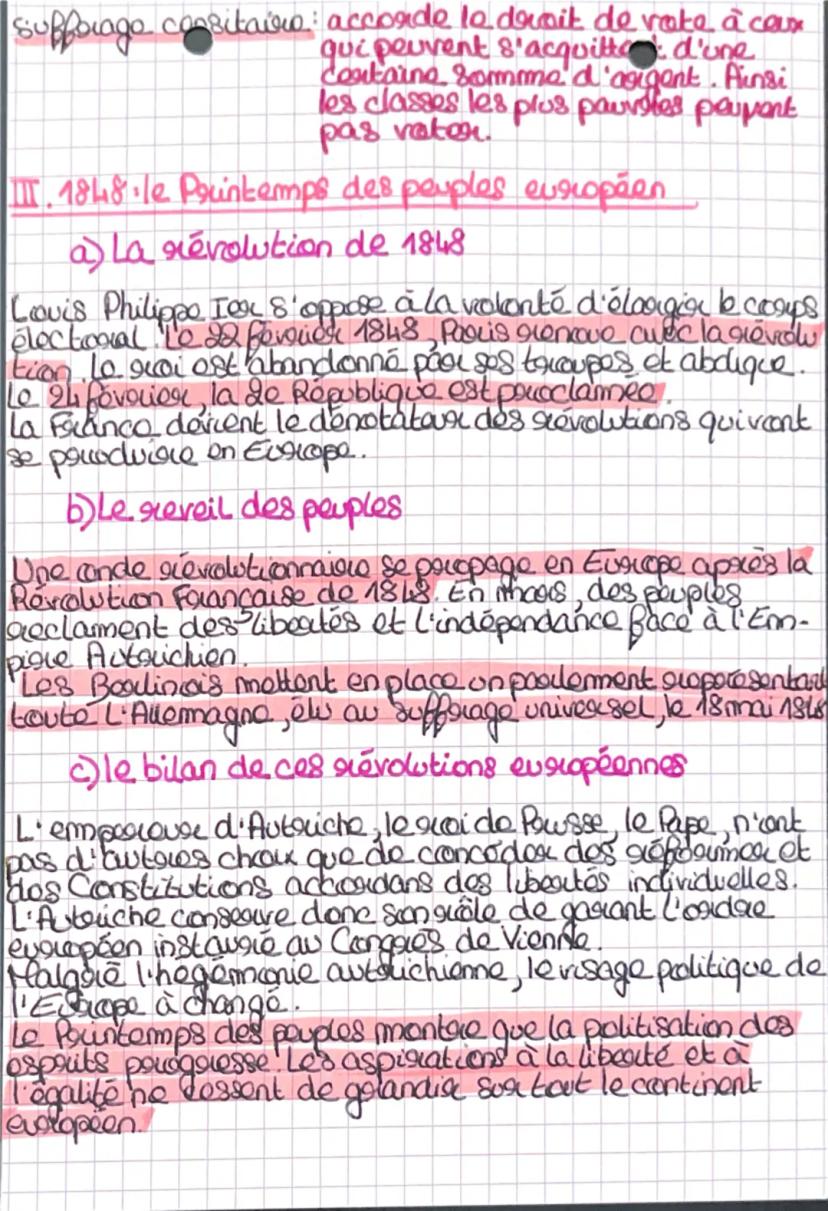 suffrage censitaire : accorde le droit de vote à ceux
qui peuvent s'acquitter d'une
certaine somme d'argent. Ainsi
les classes les plus pauvres peuvent
pas voter.
III. 1848 : le Printemps des peuples européen
a) La révolution de 1848
Louis Philippe Ier s'oppose à la volonté d'élargir le corps
électoral. Le 22 février 1848, Paris renoue avec la révolu
tion. le roi est abandonné par ses troupes et abdique.
Le 24 février, la 2e République est proclamée.
La France devient le dénotateur des révolutions qui vont
se produire en Europe.
b) Le reveil des peuples
Une onde révolutionnaire se propage en Europe après la
Révolution Française de 1848. En mars, des peuples
reclament des libertés et l'indépendance face à l'Em-
pire Autrichien.
Les Berlinois mettent en place un parlement représentant
toute l'Allemagne, élu au suffrage universel, le 18 mai 1848
c) le bilan de ces révolutions européennes
L'empereur d'Autriche, le roi de Prusse, le Pape, n'ont
pas d'autres choix que de concéder des réformer et
des Constitutions accordans des libertés individuelles.
L'Autriche conserve donc son rôle de garant l'ordre
européen instauré au Congrès de Vienne.
Malgré l'hégémonie autrichienne, le visage politique de
l'Europe à changé.
Le Printemps des peuples montre que la politisation des
esprits progresse. Les aspirations à la liberté et à
l'égalité ne cessent de grandir sur tout le continent
européen.